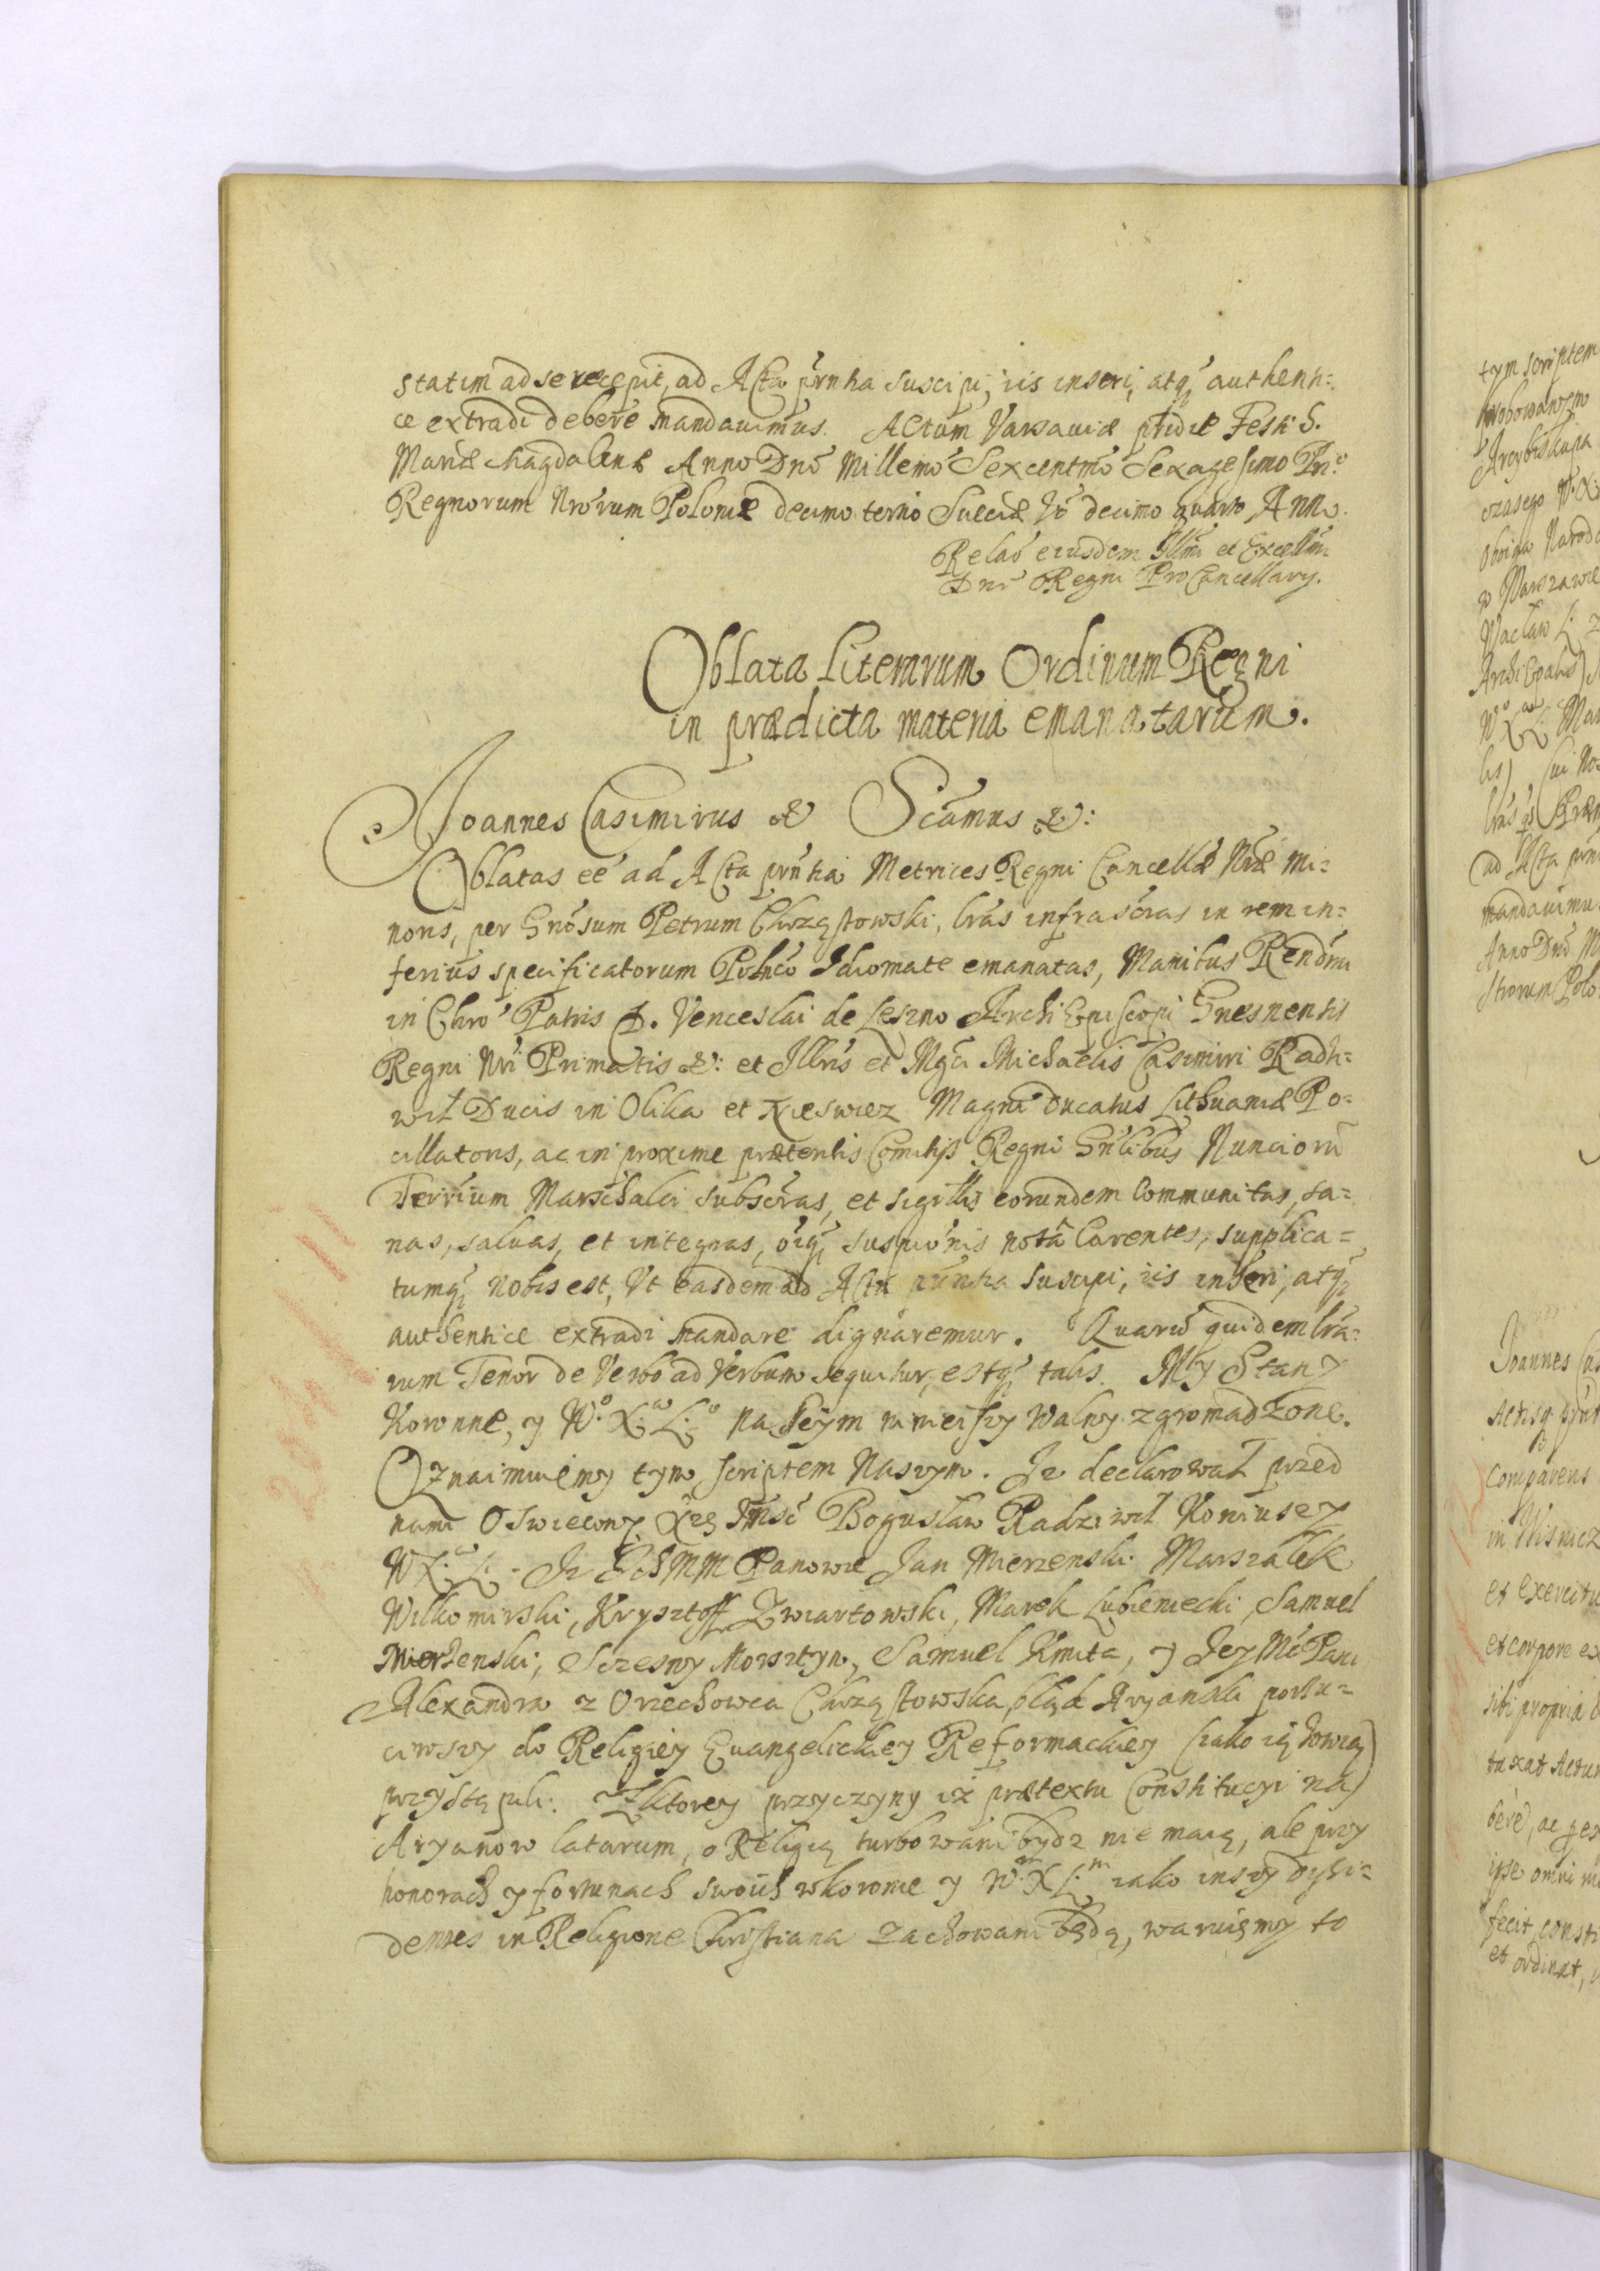 statim ad se recepit, ad Acta pñtia suscipi, iis inseri, atq̃ authenti=
ce extradi debere mandavimus. Actum Varsaviæ pridie Festi S.
Mariæ Magdalenæ Anno Dnõ Millemõ Sexcentmõ Sexagesimo Prõ
Regnorum Nrõrum Poloniæ decimo tertio Sueciæ Võ decimo quarto Anno.
Relaõ eiusdem Illmi et Excellmi
Dnĩ Regni ProCancellarij.
Oblata literarum Ordinum Regni
in prædicta materia emanatarum.
Joannes Casimirus &c Sciamus &c:
Oblatas eẽ ad Acta pñtia Metrices Regni Cancellæ Nræ mi=
noris, per Gnõsum Petrum Chrząstowski, lrãs infrascras in rem in=
ferius specificatorum Polnco Idiomate emanatas, Manibus Rendmi
in Chrõ Patris D. Venceslai de Leszno Archi Episcopi Gnesnensis
Regni Nri Primatis &c: et Illris et Mgci Michaelis Casimiri Radzi=
wił Ducis in Olika et Nieswiez Magni Ducatus Lithuaniæ Po=
cillatoris, ac in proxime præteritis Comitijs Regni Gnlibus Nunciorũ
Terrium Marschalci subscras, et sigillis eorundem communitas, sa=
nas, salvas, et integras, õiq̃ suspiõnis notâ Carentes, supplica=
tumq̃ nobis est, Vt easdem ad Acta pñtia suscipi, iis inseri, atq̃
authentice extradi mandare dignaremur. Quarũ quidem lrã=
rum Tenor de Verbo ad Verbum sequitur, estq̃ talis. My Stany
Koronne, y W.º X.ª L.º na Seym ninieiszy Walny zgromadzone.
Oznaimuiemy tym scriptem Naszym. Iz declarował przed
nami Oswiecony Xże Jmść Boguslaw Radziwił Koniuszy
WX.ª L. Iz IchMM Panowie Jan Mierzenski Marszałek
Wilkomirski, Krysztoff Zwiartowski, Marek Lubieniecki, Samuel
Mierzenski, Sczesny Morsztyn, Samuel Kmita, y JeyMć Pani
Alexandra z Orzechowca Chrząstowska, błąd Aryanski porzu=
ciwszy do Religiey Evangelickiey Reformackiey (iako ią zowią)
przystąpili. Zktorey przyczyny iż prætextu Constitucyi na
Aryanow latarum, o Religią turbowani bydz nie maią, ale przy
honorach y fortunach swoich wkoronie y W.m X L.m iako inszy dysi=
dentes in Religione Christiana zachowani będą, waruiemy to